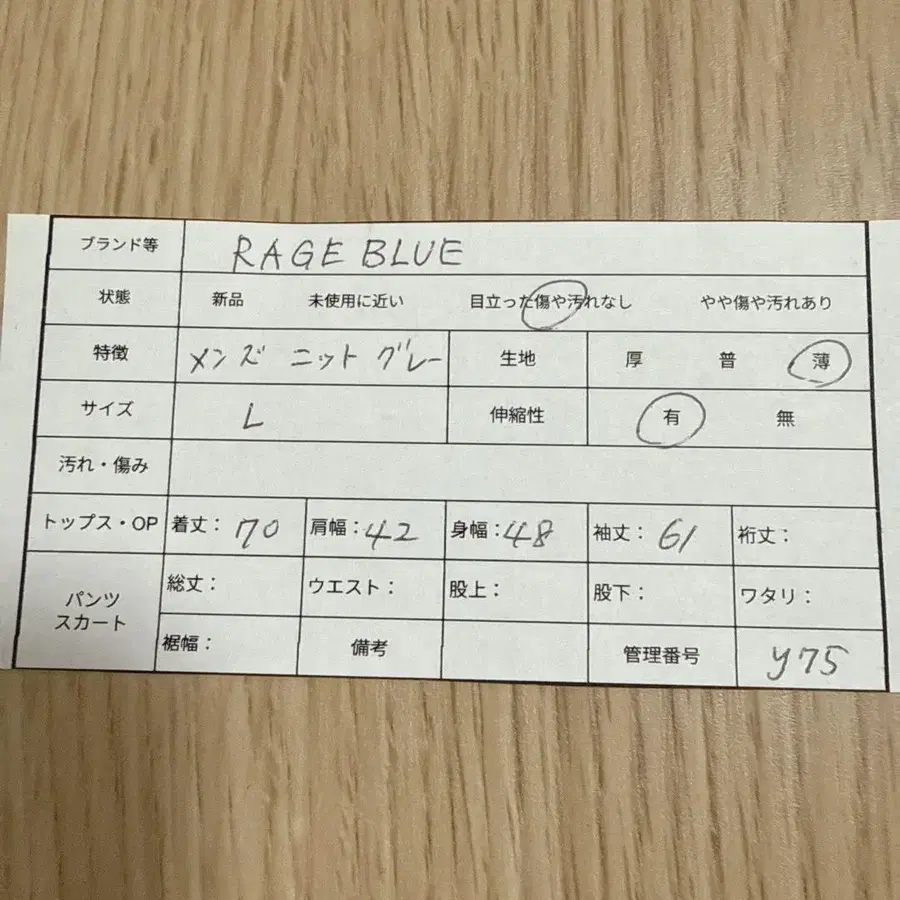 ブランド等 RAGE BLUE
状態 新品 未使用に近い 目立った傷や汚れなし やや傷や汚れあり
特徴 メンズ ニット グレー 生地 厚 普 薄
サイズ L 伸縮性 有 無
汚れ・傷み
トップス・OP 着丈： 70 肩幅：42 身幅：48 袖丈： 61 裄丈：
パンツ スカート 総丈： ウエスト： 股上： 股下： ワタリ：
裾幅： 備考 管理番号 y75